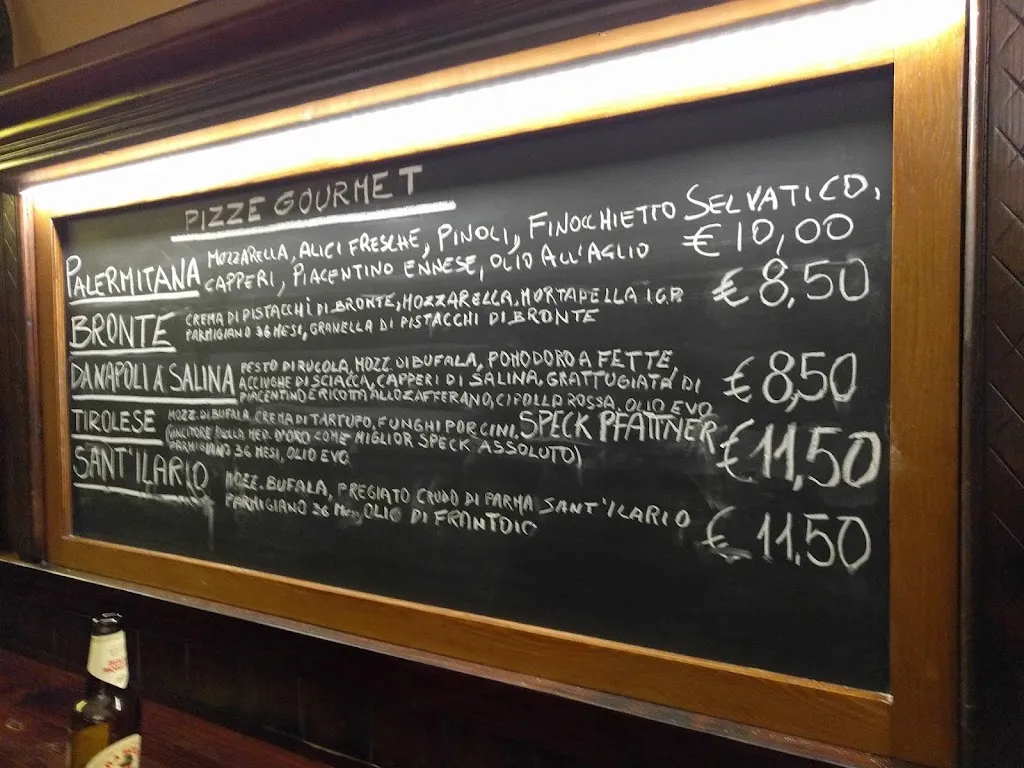 PIZZE GOURMET
PALERMITANA MOZZARELLA, ALICI FRESCHE, PINOLI, FINOCCHIETTO SELVATICO,
CAPPERI, PIACENTINO ENNESE, OLIO ALL'AGLIO € 10,00
BRONTE CREMA DI PISTACCHI DI BRONTE, MOZZARELLA, MORTADELLA I.G.P. € 8,50
PARMIGIANO 36 MESI, GRANELLA DI PISTACCHI DI BRONTE
DA NAPOLI A SALINA PESTO DI RUCOLA, MOZZ. DI BUFALA, POMODORO A FETTE,
ACCIUGHE DI SCIACCA, CAPPERI DI SALINA, GRATTUGIATA DI € 8,50
PIACENTINO E RICOTTA ALLO ZAFFERANO, CIPOLLA ROSSA, OLIO EVO
TIROLESE MOZZ. DI BUFALA, CREMA DI TARTUFO, FUNGHI PORCINI, SPECK PFATTNER
(VINCITORE DELLA MED. D'ORO COME MIGLIOR SPECK ASSOLUTO) € 11,50
PARMIGIANO 36 MESI, OLIO EVO
SANT'ILARIO MOZZ. BUFALA, PREGIATO CRUDO DI PARMA SANT'ILARIO
PARMIGIANO 36 MESI, OLIO DI FRANTOIO € 11,50